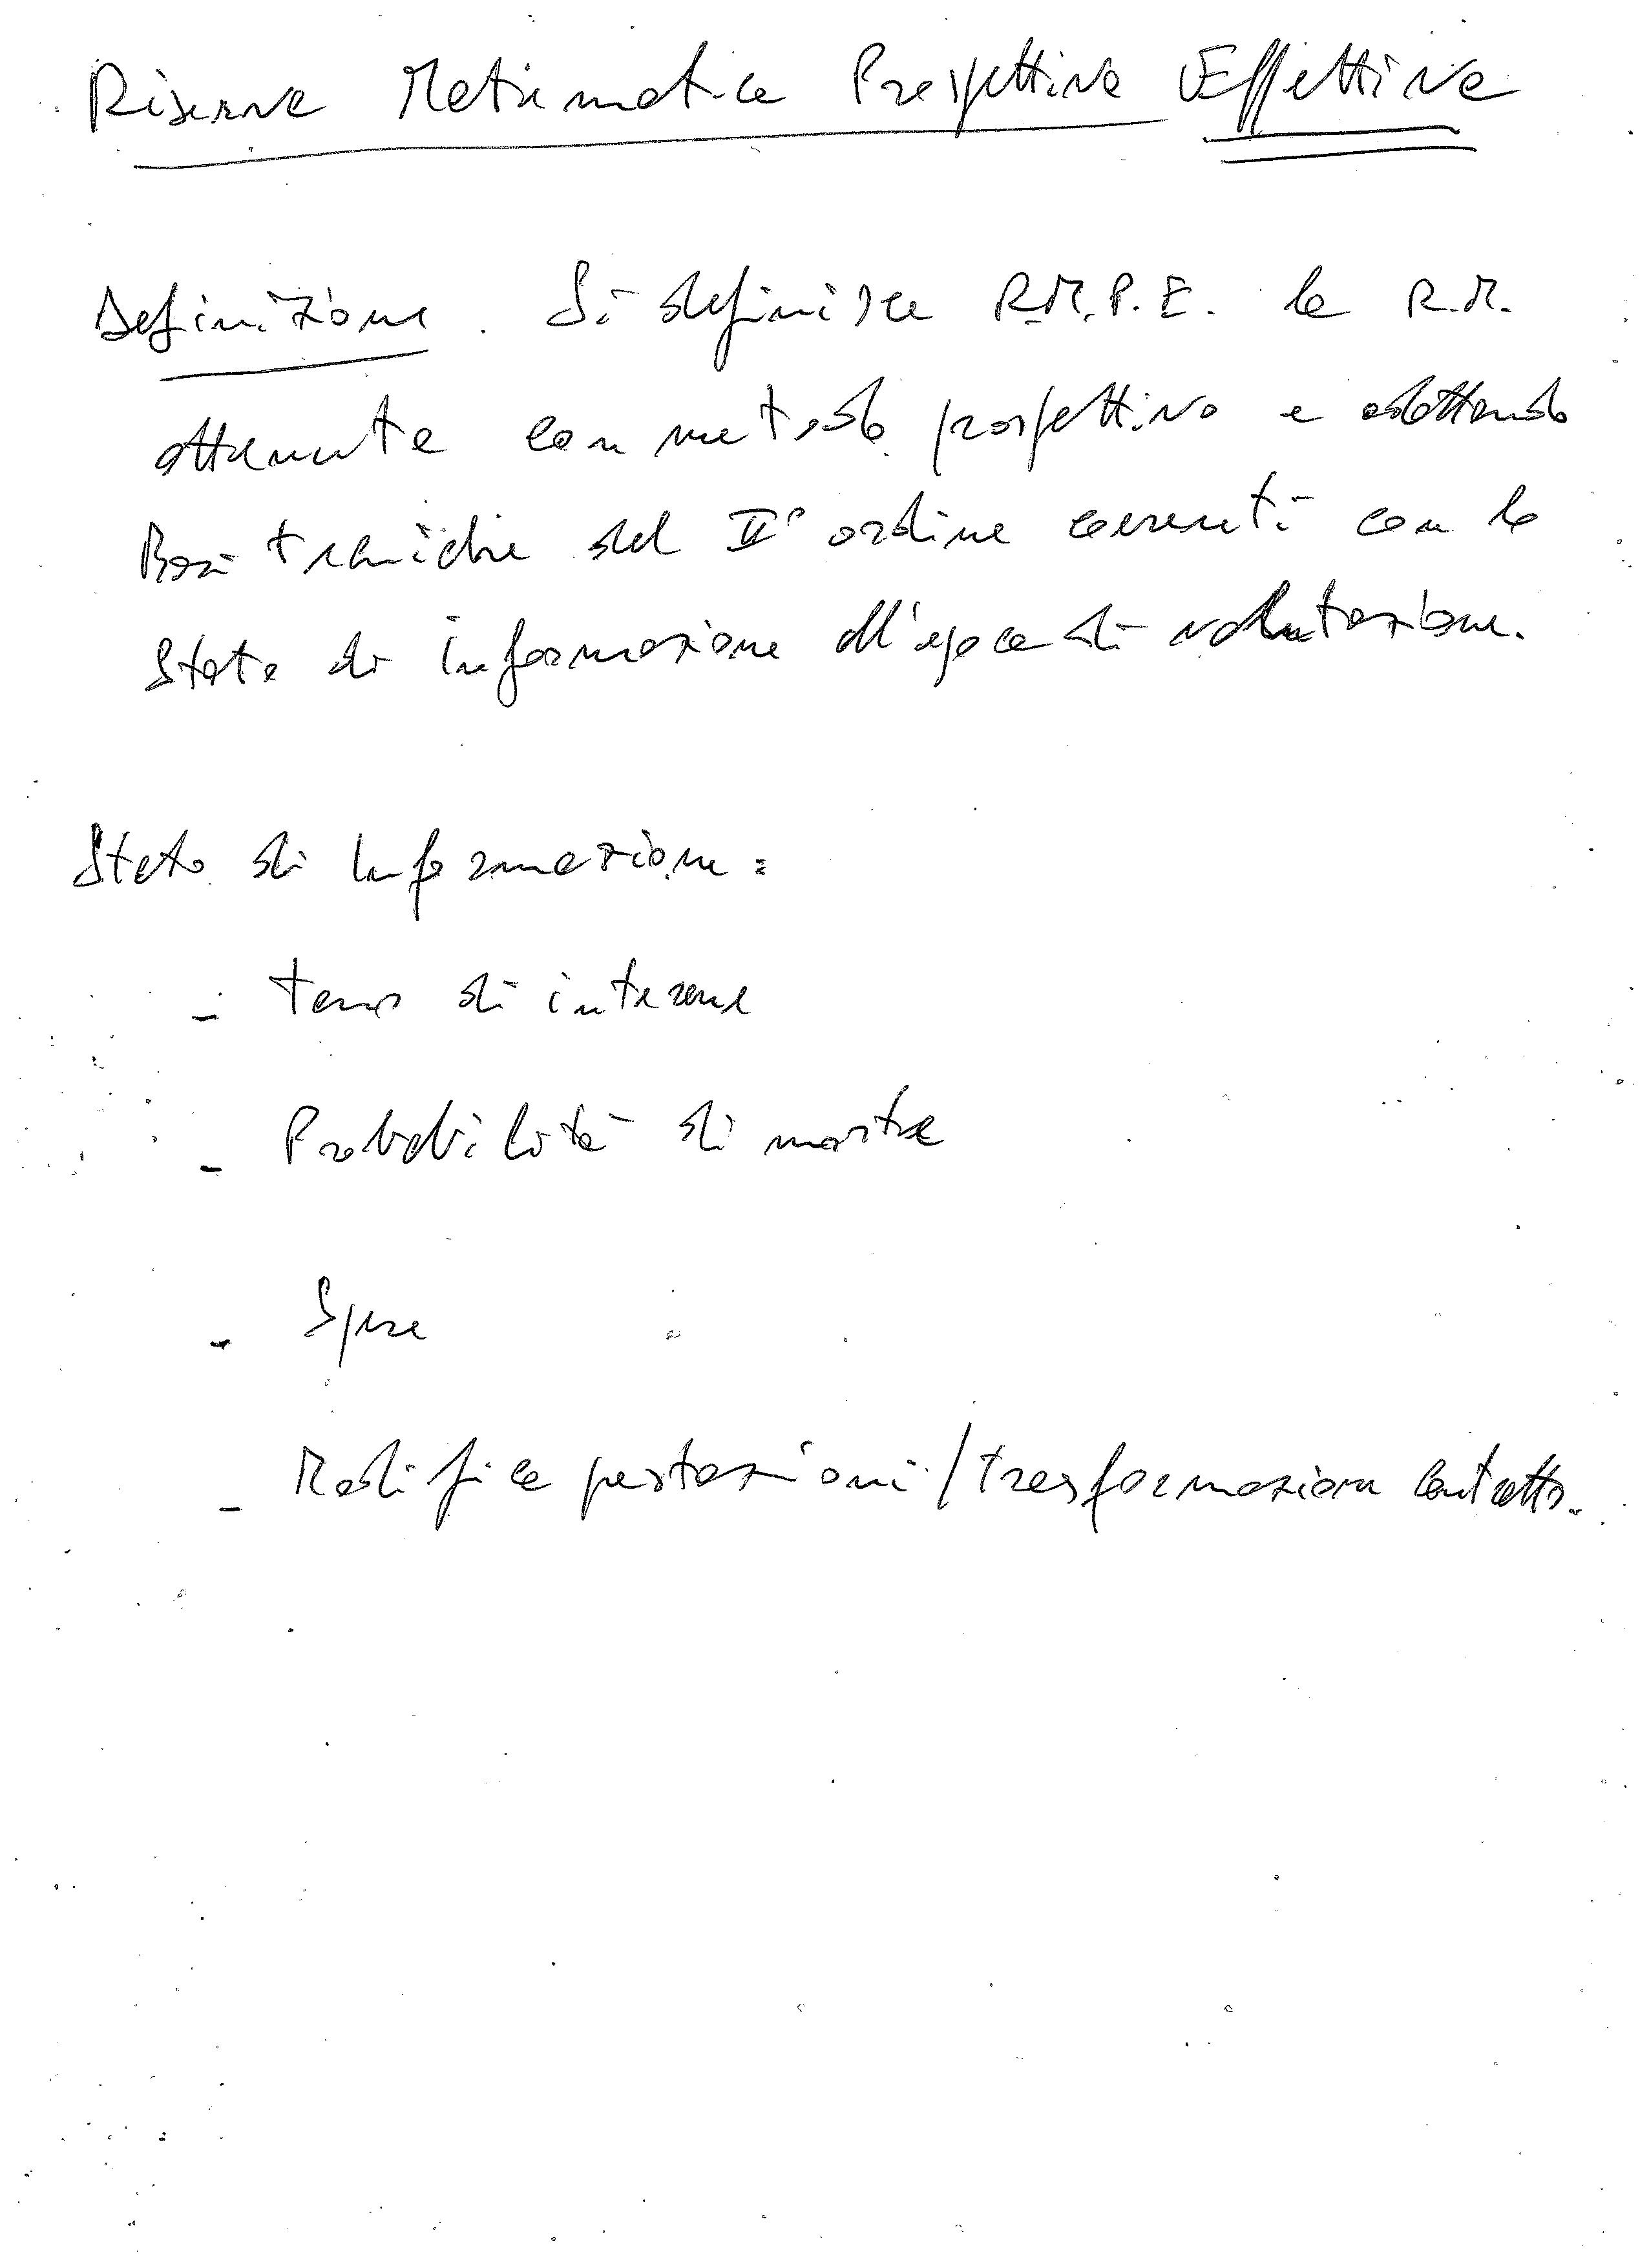 Riserva Matematica Prospettiva Effettiva
Definizione. Si definisce R.M.P.E. la R.M.
ottenuta con metodo prospettivo e adottando
Basi tecniche del II° ordine coerenti con lo
stato di informazione all'epoca di valutazione.
Stato di Informazione:
- tasso di interesse
- Probabilità di morte
- Spese
- Modifica prestazioni/trasformazione contratto.